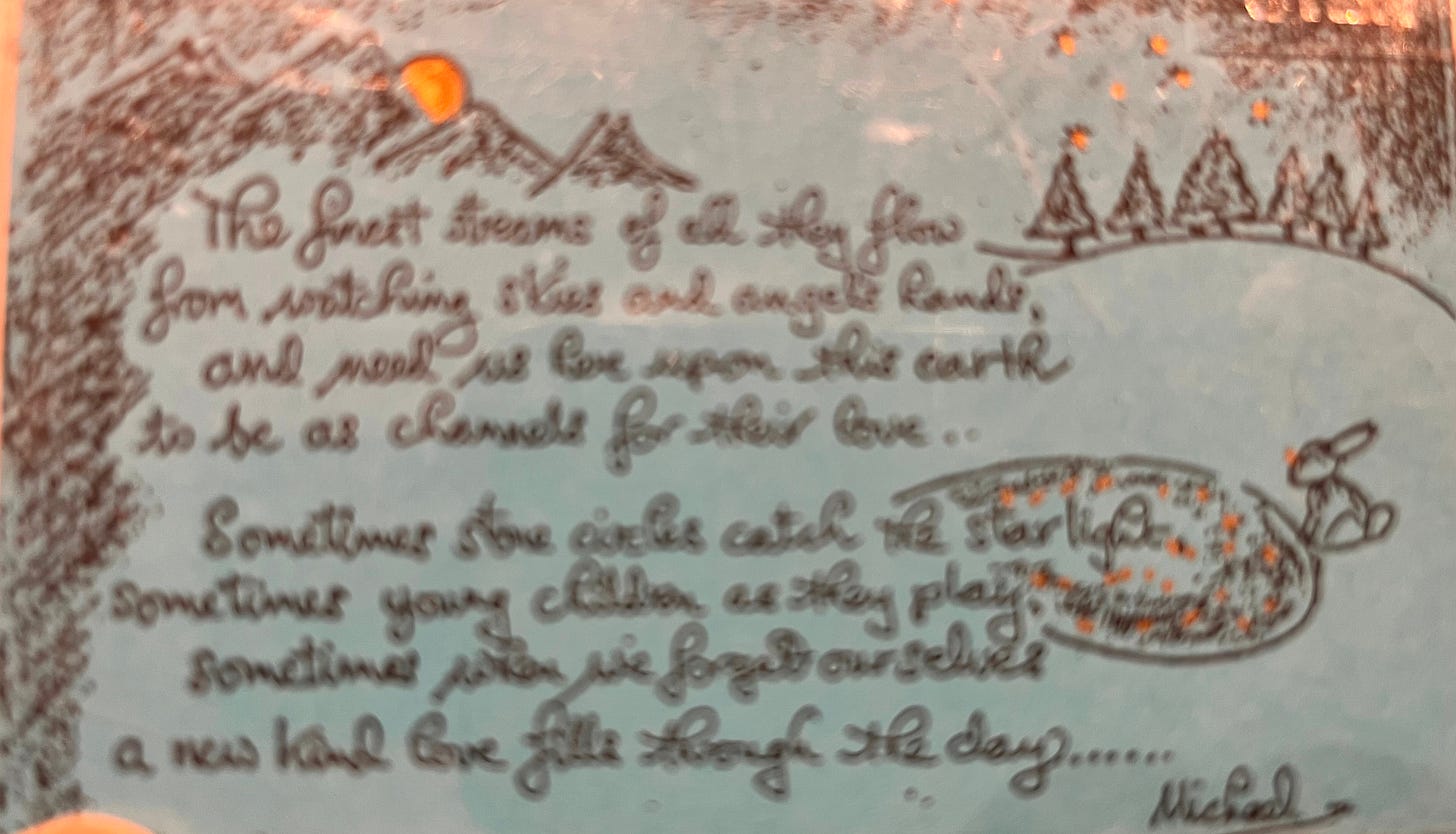 The finest streams of all they flow
from watching skies and angels hands,
and need us here upon this earth
to be as channels for their love..
Sometimes stone circles catch the starlight
sometimes young children as they play,
sometimes when we forget ourselves
a new kind love fills through the day......
Michael